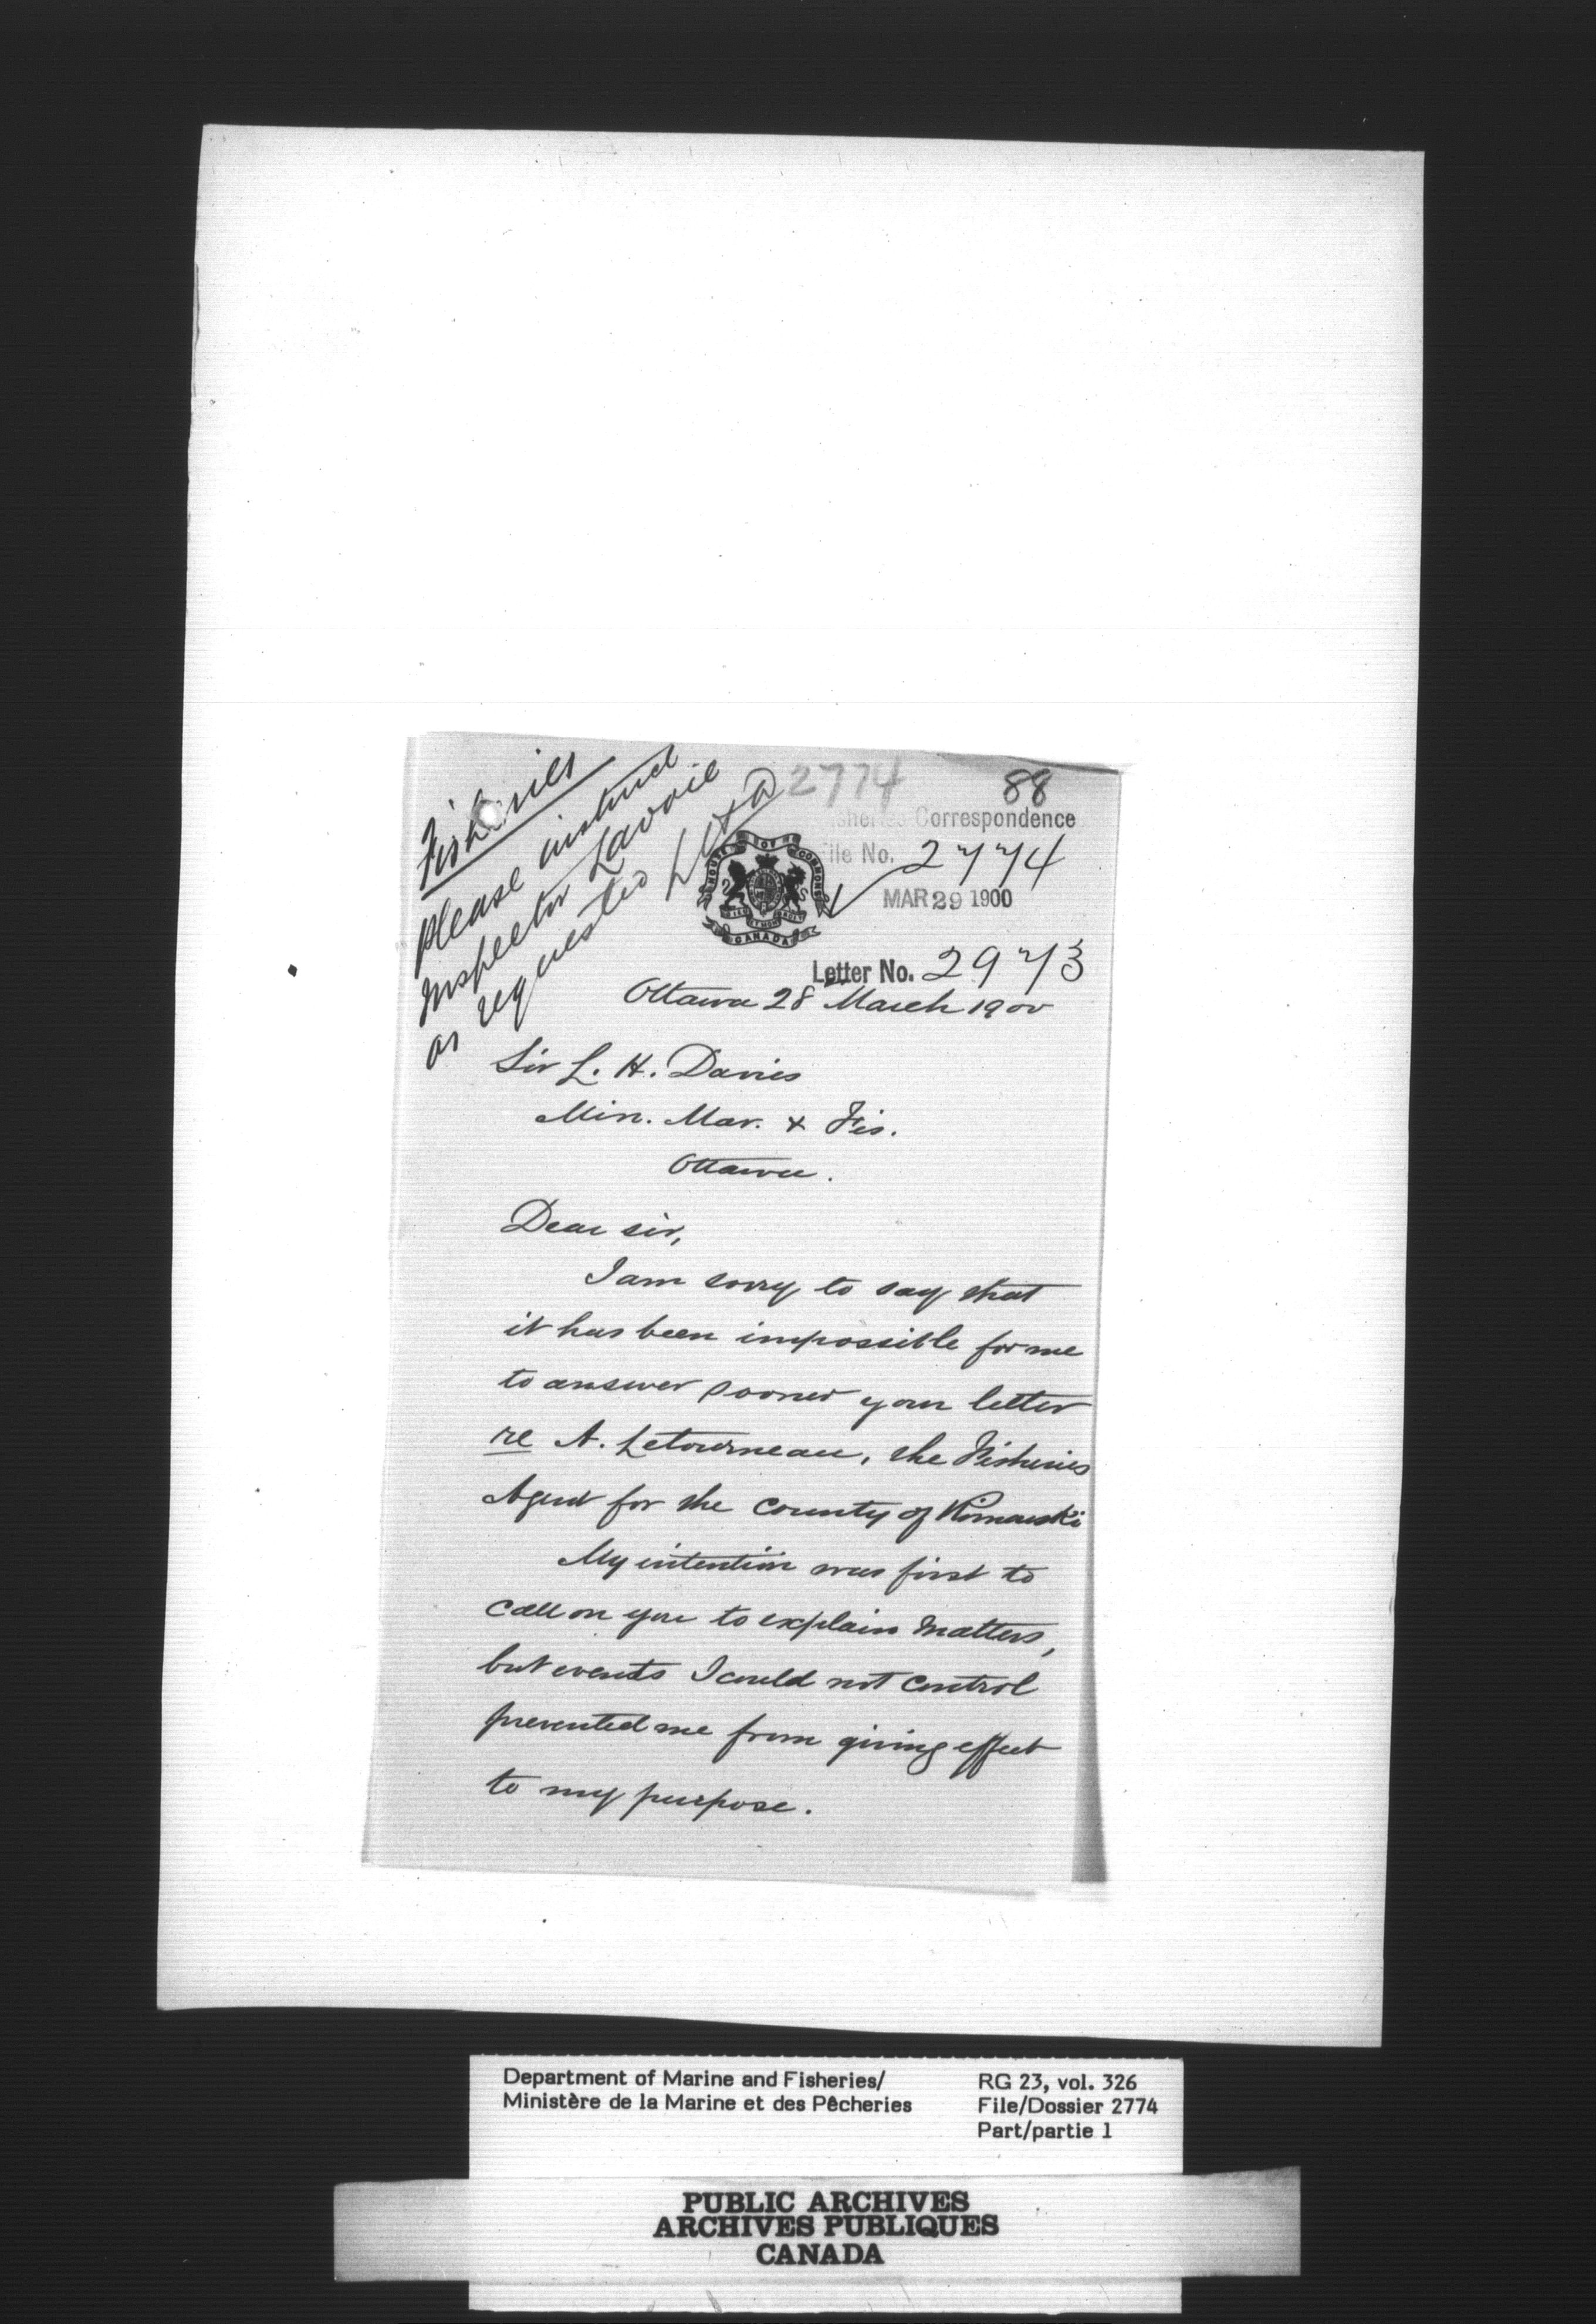 Fisheries
please instruct
Inspector Lavoie
as requested LHD
2774
88
Fisheries Correspondence
File No. 2774
MAR 29 1900
HOUSE OF COMMONS
CANADA
Letter No. 2973
Ottawa 28 March 1900
Sir L. H. Davies
Min. Mar. & Fis.
Ottawa.
Dear sir,
I am sorry to say that
it has been impossible for me
to answer sooner your letter
re A. Letourneau, the Fisheries
Agent for the County of Rimouski
My intention was first to
call on you to explain matters,
but events I could not control
prevented me from giving effect
to my purpose.
Department of Marine and Fisheries/
Ministère de la Marine et des Pêcheries
RG 23, vol. 326
File/Dossier 2774
Part/partie 1
PUBLIC ARCHIVES
ARCHIVES PUBLIQUES
CANADA